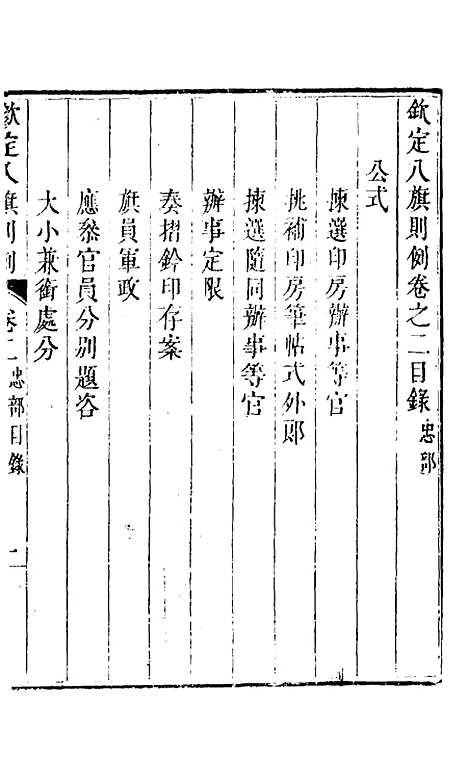 欽定八旗則例卷之二目錄 忠部
公式
揀選印房辦事等官
挑補印房筆帖式外郎
揀選隨同辦事等官
辦事定限
奏摺鈐印存案
旗員軍政
應叅官員分別題咨
大小兼銜處分
欽定八旗則例 卷二忠部目錄 一